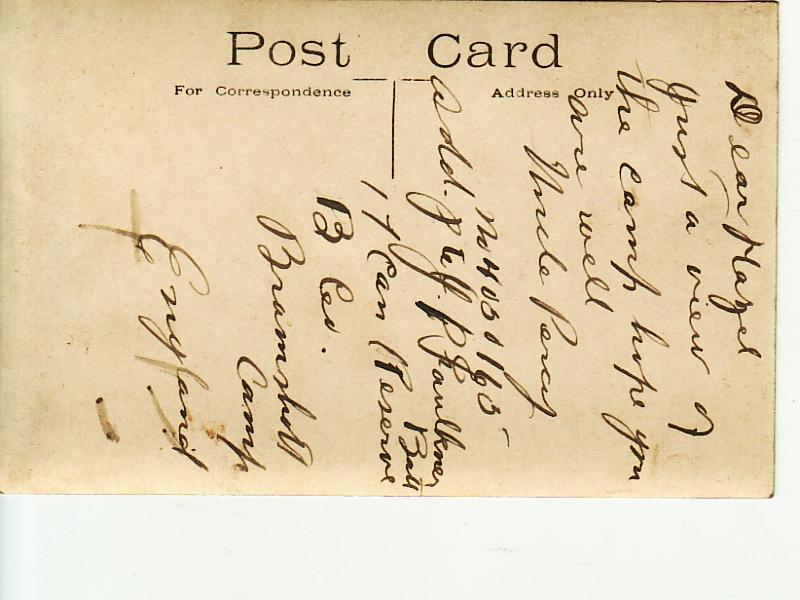 Post Card
For Correspondence
Address Only
Dear Hazel
Just a view of
the camp hope you
are well
Uncle Percy
No 4030163
Add. Pte J. P. Faulkner
17 Can Reserve Batt
B Co.
Bramshott
Camp
England